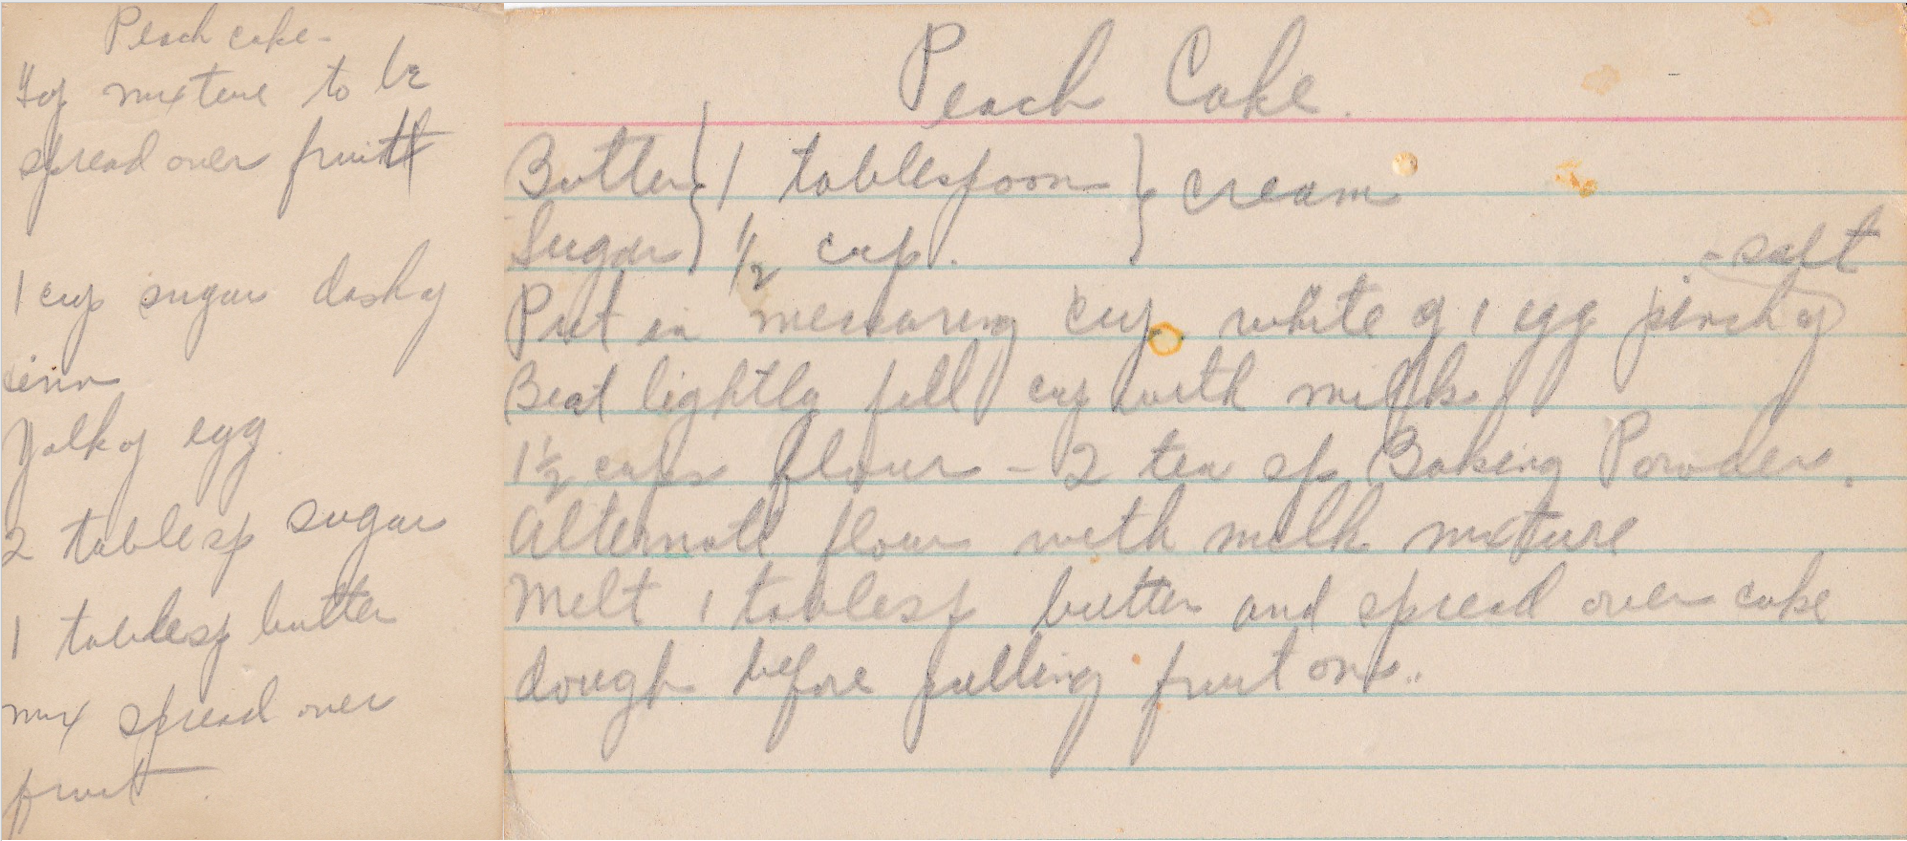 Peach cake-
of mixture to be
spread over fruit
1 cup sugar dash of
cinn
Yolk of egg
2 tablesp sugar
1 tablesp butter
mix spread over
fruit.
Peach Cake.
Butter } 1 tablespoon } cream
Sugar } 1/2 cup.
- salt
Put in measuring cup white of 1 egg pinch of
Beat lightly fill cup with milk
1 1/2 cups flour - 2 tea sp Baking Powder.
Alternate flour with milk mixture
Melt 1 tablesp butter and spread over cake
dough before putting fruit on..